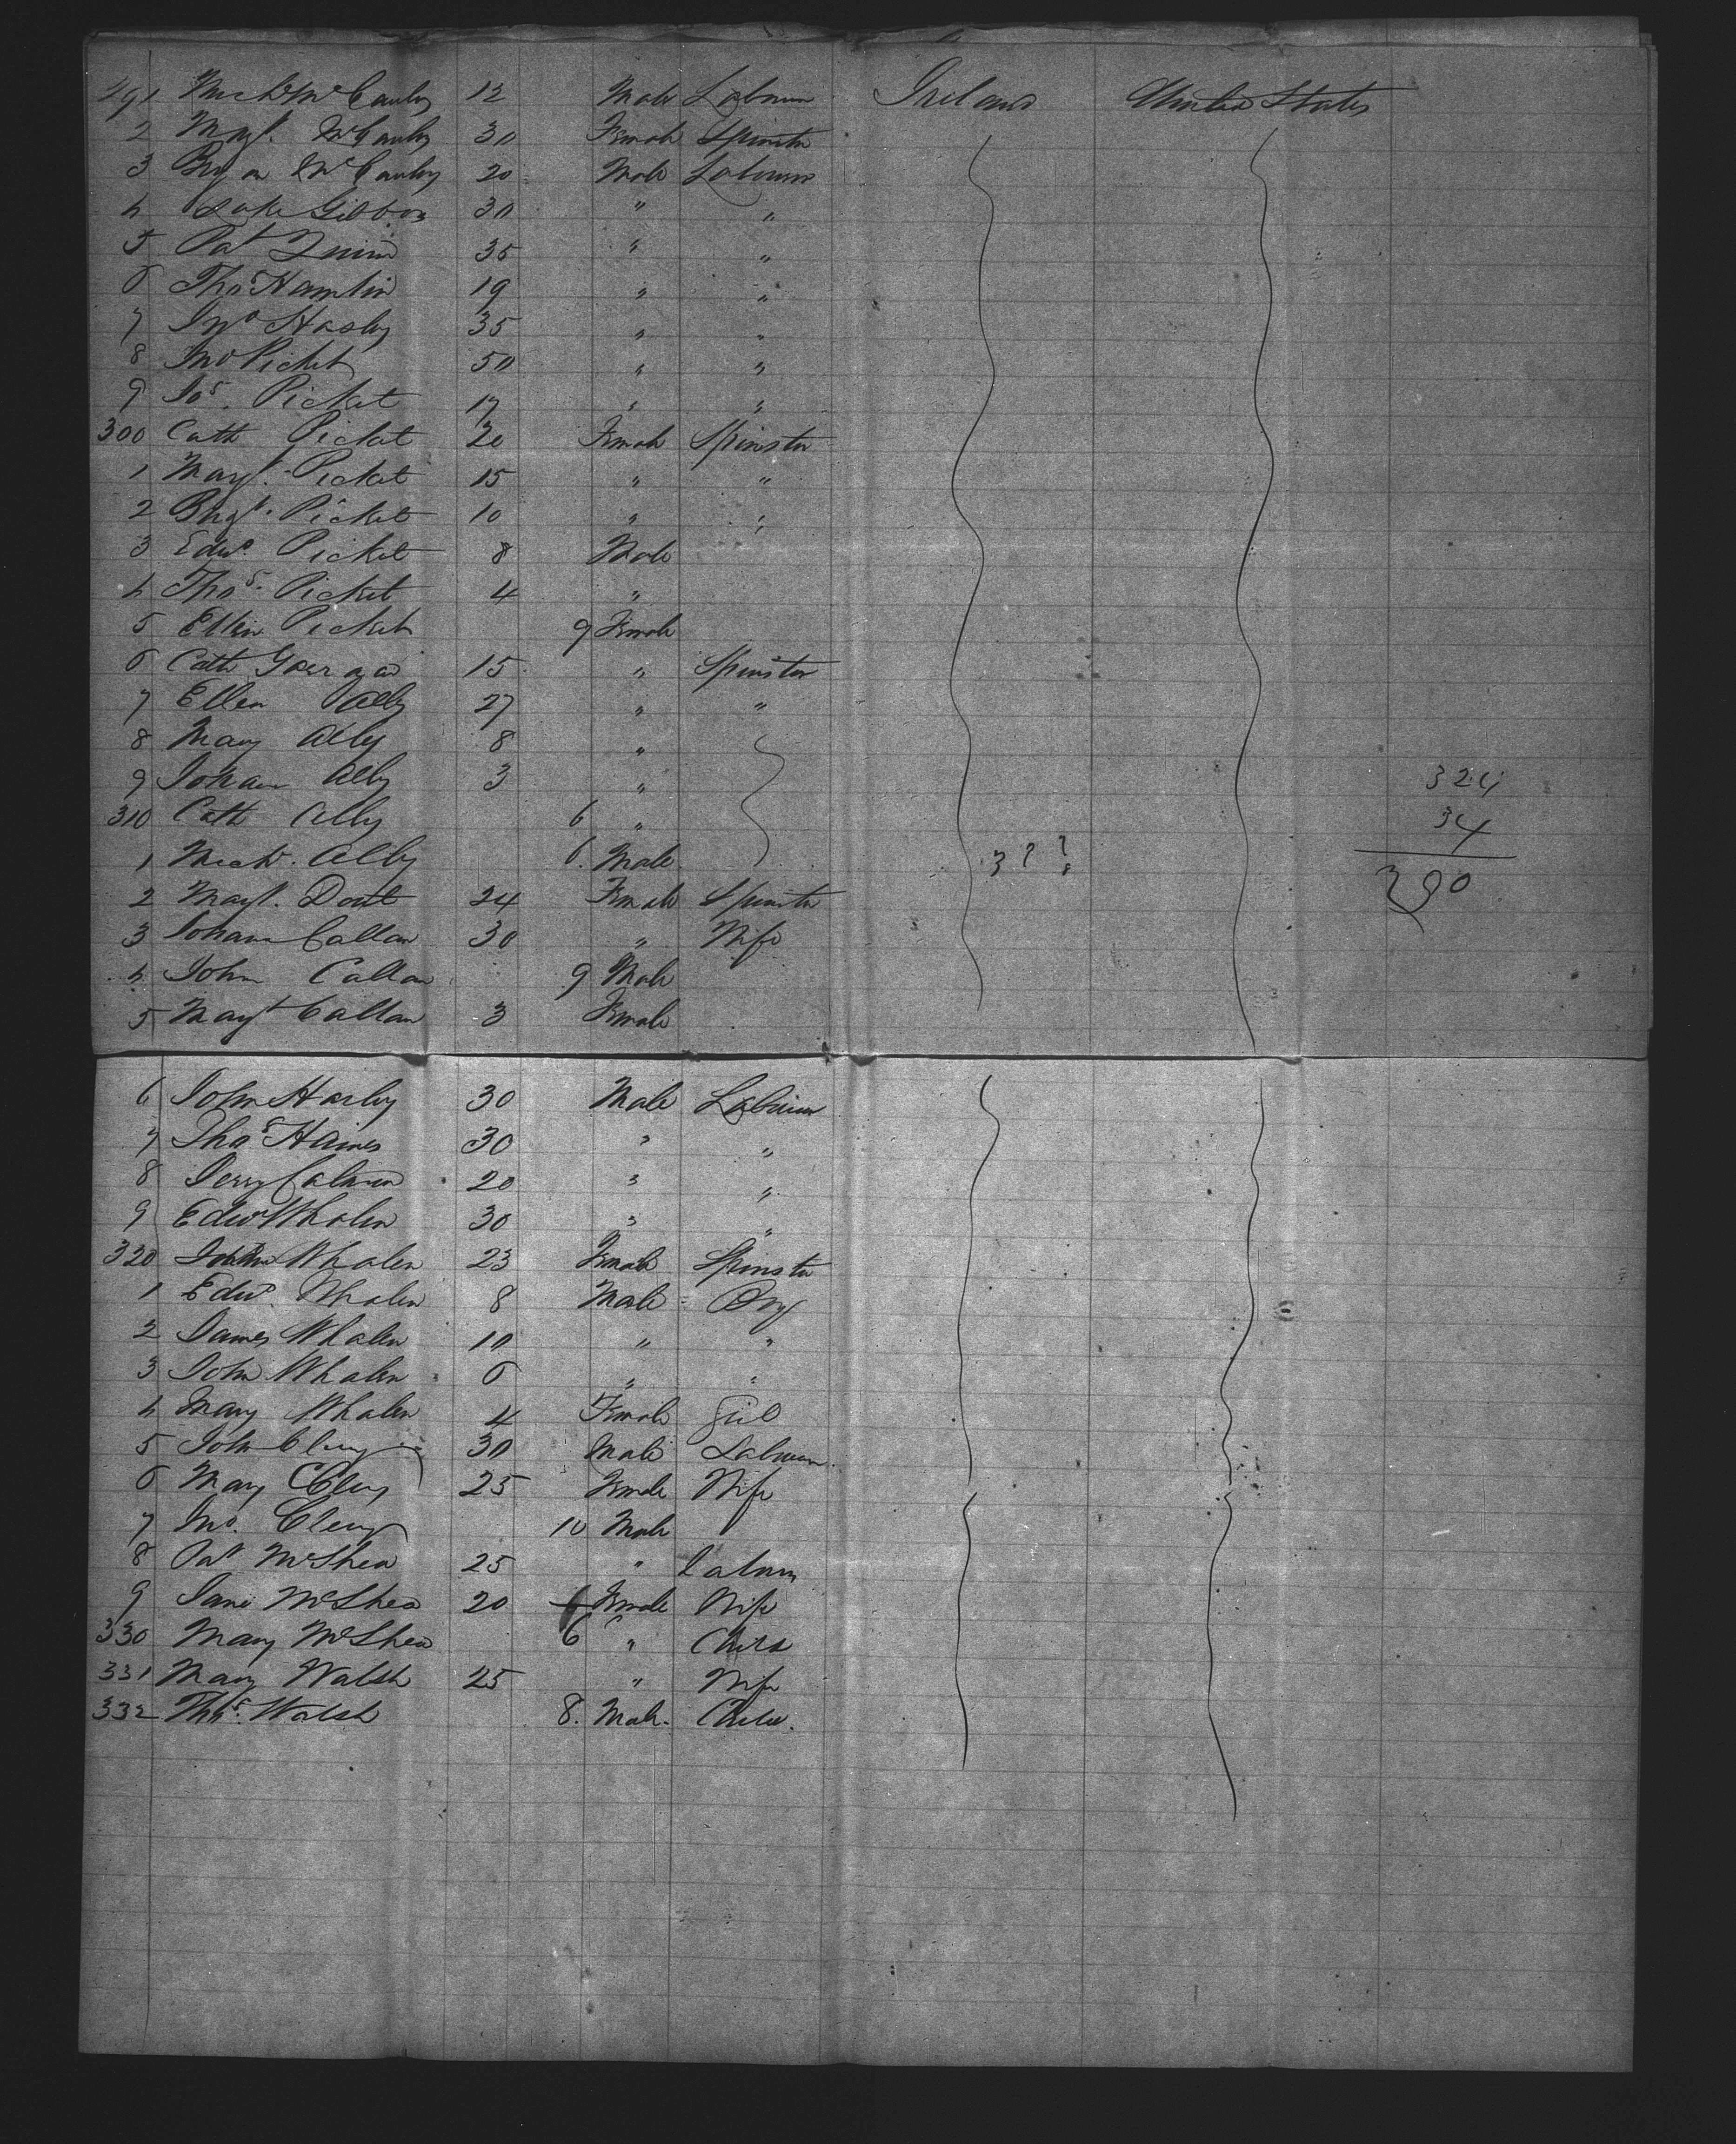 291 Mich. McCauley 12 Male Labourer Ireland United States
2 Magt. McCauley 30 Female Spinster
3 Bryan McCauley 20 Male Labourer
4 Luke Gibbon 30 " "
5 Pat Quinn 35 " "
6 Thos Hamlin 19 " "
7 Jno Hasley 35 " "
8 Jno Picket 50 " "
9 Jos. Picket 17 " "
300 Cath Picket 20 Female Spinster
1 Margt. Picket 15 " "
2 Brigt. Picket 10 " "
3 Edwd. Picket 8 Male
4 Thos. Picket 4 "
5 Ellen Picket 9 Female
6 Cath 15 " Spinster
7 Ellen Alby 27 " "
8 Mary Alby 8 "
9 Johan Alby 3 "
310 Cath Alby 6 "
1 Mich. Alby 6. Male
2 Margt. Dout 24 Female Spinster
3 Johan Callan 30 " Wife
4 John Callan 9 Male
5 Margt Callan 3 Female
3 ? ?
324
34
290
6 John Harley 30 Male Labourer
7 Thos Haines 30 " "
8 Derry 20 " "
9 Edwd Whalen 30 " "
320 Whalen 23 Female Spinster
1 Edwd. Whalen 8 Male Boy
2 James Whalen 10 " "
3 John Whalen 6 " "
4 Mary Whalen 4 Female Girl
5 John Clery 30 Male Labourer
6 Mary Clery 25 Female Wife
7 Jno. Clery 10 Male
8 Pat McShea 25 " Labourer
9 Jane McShea 20 Female Wife
330 Mary McShea 6 " Child
331 Mary Walsh 25 " Wife
332 Thos. Walsh 8. Male. Child.